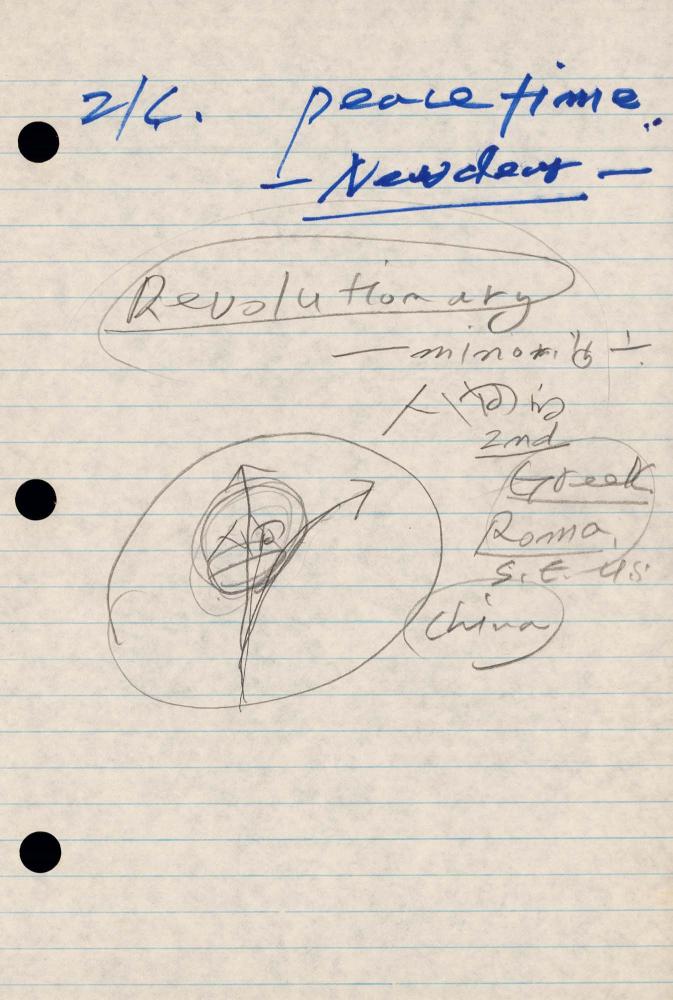 2/6. peace time
— Newdeal —
Revolutionary
— minority
2nd
Greek
Roma,
S.E. US
China